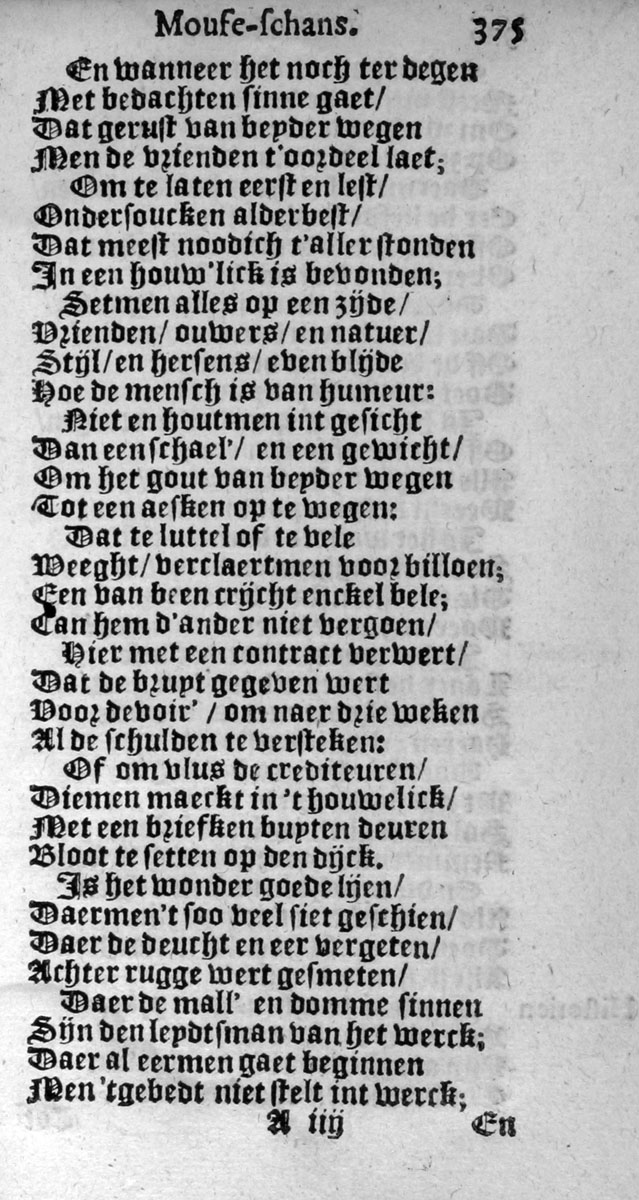 Mouse-schans. 375
En wanneer het noch ter degen
Met bedachten sinne gaet/
Dat gerust van beyder wegen
Men de vrienden t'oordeel laet;
Om te laten eerst en lest/
Ondersoucken alderbest/
Dat meest noodich t'aller stonden
In een houw'lick is bevonden;
Setmen alles op een zijde/
Vrienden/ ouwers/ en natuer/
Stijl/ en hersens/ even blijde
Hoe de mensch is van humeur:
Niet en houtmen int gesicht
Dan een schael'/ en een gewicht/
Om het gout van beyder wegen
Tot een aesken op te wegen:
Dat te luttel of te vele
Weeght/ verclaertmen voor billoen;
Een van been crijcht enckel bele;
Can hem d'ander niet vergoen/
Hier met een contract verwert/
Dat de bruyt gegeven wert
Voor devoir'/ om naer drie weken
Al de schulden te versteken:
Of om vlus de crediteuren/
Diemen maeckt in 't houwelick/
Met een briefken buyten deuren
Bloot te setten op den dijck.
Is het wonder goede lijen/
Daermen't soo veel siet geschien/
Daer de deucht en eer vergeten/
Achter rugge wert gesmeten/
Daer de mall' en domme sinnen
Sijn den leydtsman van het werck;
Daer al eermen gaet beginnen
Men 'tgebedt niet stelt int werck;
A iij En